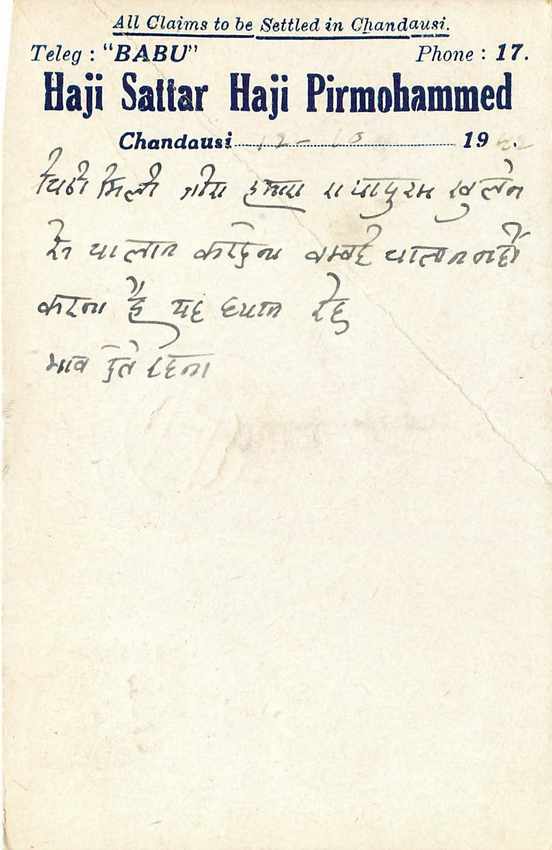 All Claims to be Settled in Chandausi.
Teleg : "BABU" Phone : 17.
Haji Sattar Haji Pirmohammed
Chandausi 12-10 19
चिठी मिली हमारा
चालान वम्बई चालान नहीं
करना है यह ध्यान रहे
भाव देते रहना